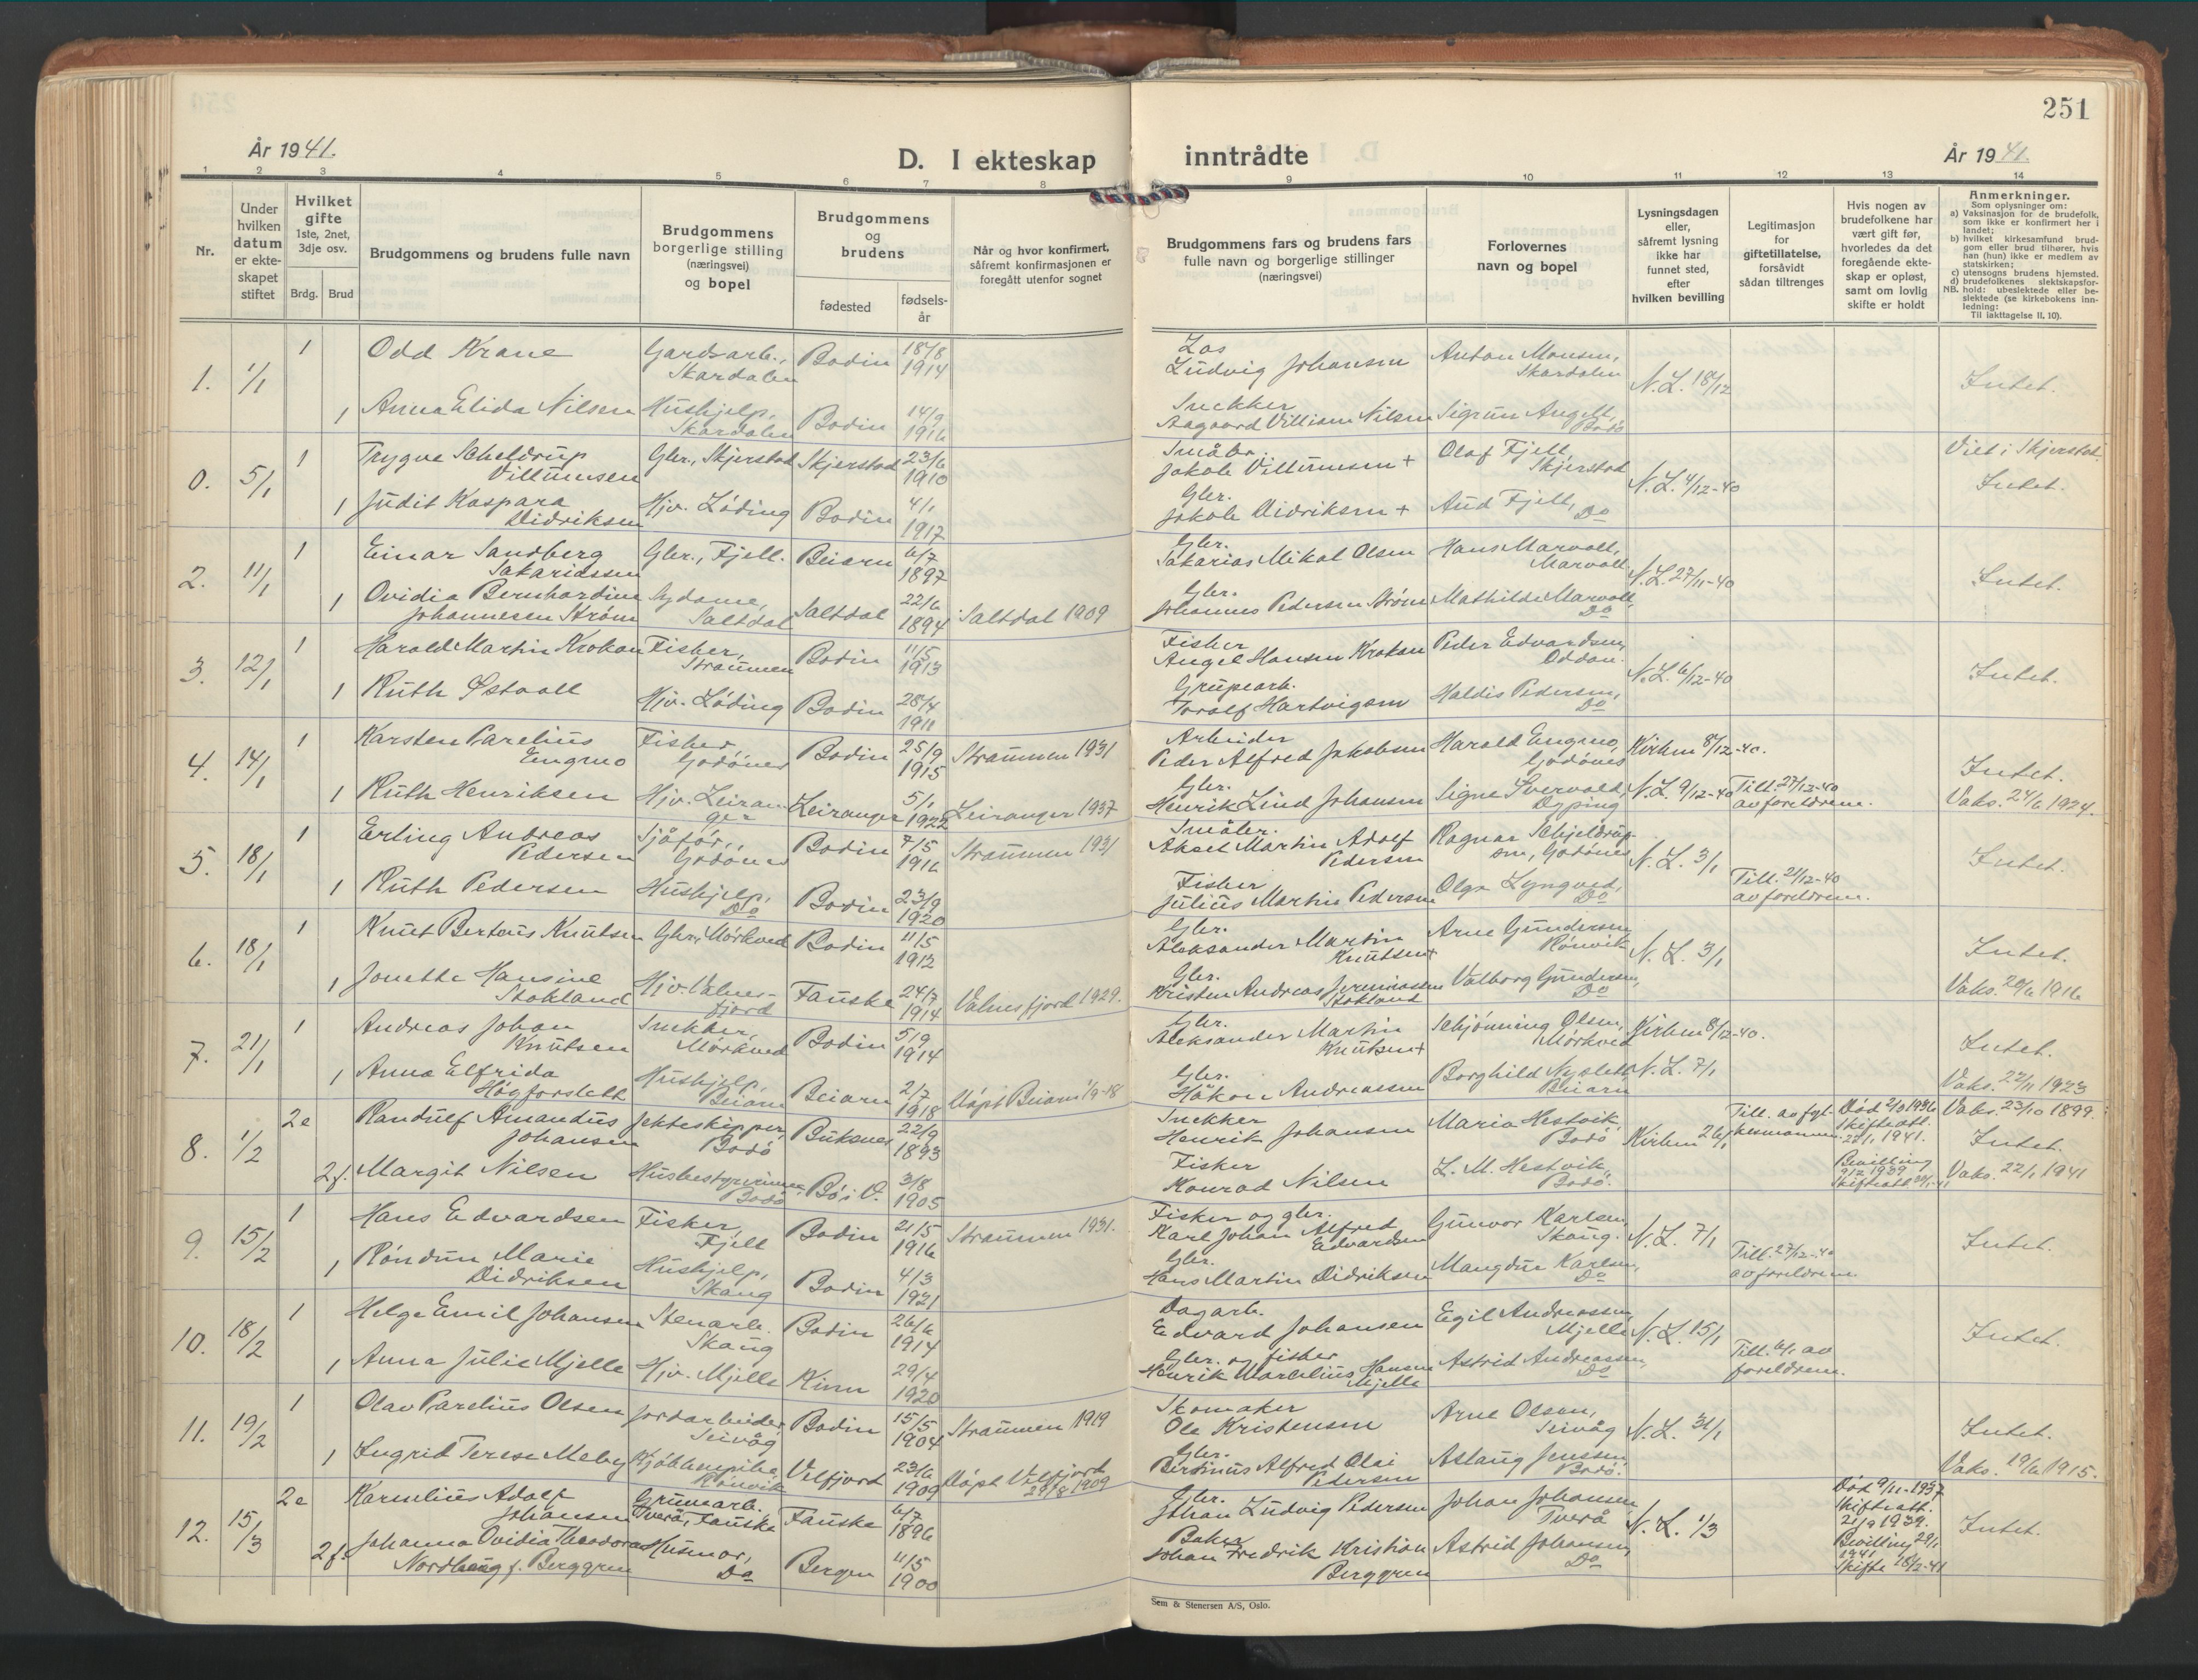 251
År 1941.
D. I ekteskap inntrådte
År 1941.
1 2 3 4 5 6 7 8 9 10 11 12 13 14
Nr.
Under hvilken datum er ekteskapet stiftet
Hvilket gifte 1ste, 2net, 3dje osv.
Brdg. Brud
Brudgommens og brudens fulle navn
Brudgommens borgerlige stilling (næringsvei) og bopel
Brudgommens og brudens
fødested
fødselsår
Når og hvor konfirmert, såfremt konfirmasjonen er foregått utenfor sognet
Brudgommens fars og brudens fars fulle navn og borgerlige stillinger (næringsvei)
Forlovernes navn og bopel
Lysningsdagen eller, såfremt lysning ikke har funnet sted, efter hvilken bevilling
Legitimasjon for giftetillatelse, forsåvidt sådan tiltrenges
Hvis nogen av brudefolkene har vært gift før, hvorledes da det foregående ekteskap er opløst, samt om lovlig skifte er holdt
Anmerkninger.
Som oplysninger om:
a) Vaksinasjon for de brudefolk, som ikke er konfirmert her i landet;
b) hvilket kirkesamfund brudgom eller brud tilhører, hvis han (hun) ikke er medlem av statskirken;
c) utensogns brudens hjemsted.
d) brudefolkenes slektskapsforhold: ubeslektede eller beslektede (se kirkebokens innledning:
NB. Til iakttagelse II, 10).
1. 1/1
1 Odd Krane Gardsarb., Skardalen Bodin 18/8 1914
Ludvig Johansen Anton Monsen, Skardalen N.L. 18/12 Intet.
1 Anna Elida Nilsen Hushjelp, Skardalen Bodin 14/9 1916
Snekker Aagaard Villiam Nilsen Bodø
0. 5/1
1 Trygve Scheldrup Villumsen Gbr., Skjerstad Skjerstad 23/6 1910
Jakob Villumsen + Olaf Fjell, Skjerstad N.L. 4/12-40 Viet i Skjerstad. Intet.
1 Judit Kaspara Didriksen Hjv. Løding Bodin 4/1 1917
Gbr. Jakob Didriksen + Aud Fjell, Do
2. 11/1
1 Einar Sandberg Sakariassen Gbr., Fjell. Beiarn 6/7 1897
Gbr. Sakarias Mikal Olsen Hans Marvoll, Marvoll N.L. 27/11-40 Intet.
1 Ovidia Bernhardine Johannesen Strøm Sydame, Saltdal Saltdal 22/6 1894 Saltdal 1909
Gbr. Johannes Pedersen Strøm Mathilde Marvoll, Do
3. 12/1
1 Harald Martin Krokan Fisker, Straumen Bodin 11/5 1913
Fisker Angel Hansen Krokan Peder Edvardsen, Oddan. N.L. 6/12-40 Intet.
1 Ruth Østvoll Hjv. Løding Bodin 28/4 1911
Grubearb. Torolf Hartvigsen Haldis Pedersen, Do
4. 14/1
1 Karsten Parelius Engmo Fisker, Godønes Bodin 25/9 1915 Straumen 1931
Arbeider Peder Alfred Jakobsen Harald Engmo, Godønes Kirken 8/12-40. Intet.
1 Ruth Henriksen Hjv. Leiranger Leiranger 5/1 1922 Leiranger 1937
Gbr. Henrik Lind Johansen Signe Sværvold, Dyping N.L. 9/12-40 Till. 27/12-40 av foreldrene. Vaks. 24/6 1924.
5. 18/1
1 Erling Andreas Pedersen Sjåfør, Godønes Bodin 7/5 1916 Straumen 1931
Småbr. Aksel Martin Adolf Pedersen Ragnar Schjeldrupsen, Godønes N.L. 3/1 Intet.
1 Ruth Pedersen Hushjelp, Do Bodin 23/9 1920
Fisker Julius Martin Pedersen Olga Lyngved, Do Till. 21/12-40 av foreldrene.
6. 18/1
1 Knut Berteus Knutsen Gbr. Mørkved Bodin 11/5 1912
Gbr. Aleksander Martin Knutsen + Arne Gundersen Rønvik N.L. 3/1 Intet.
1 Jonette Hansine Stokland Hjv. Valnesfjord Fauske 24/7 1914 Valnesfjord 1929.
Gbr. Kristen Andreas Jeremiassen Stokland Valborg Gundersen, Do Vaks. 20/6 1916
7. 21/1
1 Andreas Johan Knutsen Snekker, Mørkved Bodin 5/9 1914
Gbr. Aleksander Martin Knutsen + Schjønning Olsen, Mørkved Kirken 8/12-40. Intet.
1 Anna Elfrida Høgforslett Hushjelp, Beiarn Beiarn 2/7 1918 Døpt Beiarn 1/9-18
Gbr. Håkon Andreassen Borghild Nyslett, Beiarn N.L. 7/1 Vaks. 27/11 1923
8. 1/2
2e Randulf Amandus Johansen Jekteskipper, Bodø Buksnes 22/9 1893
Snekker Henrik Johansen Maria Hestvik, Bodø Kirken 26/1 Till. av fylkesmannen Død 2/10 1936 Skifteatt. 1941. Vaks. 23/10 1899. Intet.
2f. Margit Nilsen Husbestyrerinne, Bodø Bø i V. 3/8 1905
Fisker Konrad Nilsen L. M. Hestvik, Bodø. Bevilling 1939 Skifteatt. Vaks. 22/1 1941
9. 15/2
1 Hans Edvardsen Fisker, Fjell Bodin 21/5 1916 Straumen 1931.
Fisker og gbr. Karl Johan Alfred Edvardsen Gunvor Karlsen, Skaug. N.L. 7/1 Intet.
1 Røndun Marie Didriksen Hushjelp, Skaug Bodin 4/3 1921
Gbr. Hans Martin Didriksen Mangdur Karlsen, Do Till. 27/12-40 av foreldrene
10. 18/2
1 Helge Emil Johansen Stenarb. Skaug Bodin 26/6 1914
Dagarb. Edvard Johansen Egil Andreassen, Mjelle N.L. 15/1 Intet.
1 Anna Julie Mjelle Hjv. Mjelle Kinn 29/4 1920
Gbr. og fisker Henrik Marselius Hansen Mjelle Astrid Andreassen, Do Till. 6/1 av foreldrene.
11. 19/2
1 Olav Parelius Olsen Jordarbeider, Seivåg Bodin 15/5 1904 Straumen 1919
Skomaker Ole Kristensen Arne Olsen, Seivåg N.L. 31/1 Intet.
1 Ingrid Terese Meby Rønvik Velfjord 23/6 1909 Døpt Velfjord 29/8 1909
Gbr. Bertinus Alfred Olai Pedersen Aslaug Jenssen, Bodø. Vaks. 19/6 1915.
12. 15/3
2e Karnelius Adolf Johansen Grubearb. Tverå, Fauske Fauske 6/7 1896
Gbr. Johan Ludvig Pedersen Johan Johansen, Tverå N.L. 1/3 Død 9/11-1937 Skifteatt. 21/9 1939. Intet.
2f. Johanna Ovidia Theodora Nordhaug f. Berggren Husmor, Do Bergen 11/5 1900
Baker Johan Fredrik Kristian Berggren Astrid Johansen, Do Bevilling 29/1 1941 Skifte 18/2-41
Sem & Stenersen A/S, Oslo.